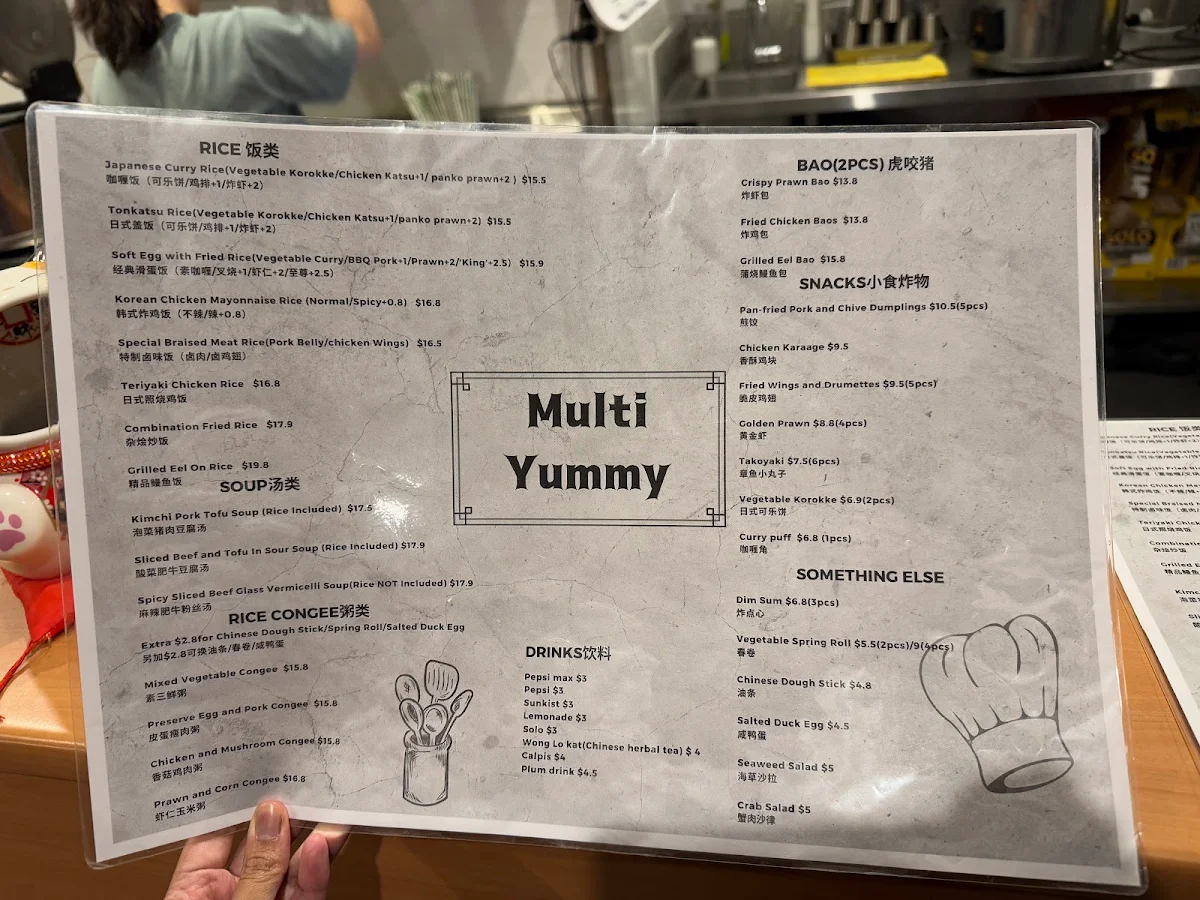 RICE 饭类
Japanese Curry Rice(Vegetable Korokke/Chicken Katsu+1/ panko prawn+2 ) $15.5
咖喱饭（可乐饼/鸡排+1/炸虾+2）
Tonkatsu Rice(Vegetable Korokke/Chicken Katsu+1/panko prawn+2) $15.5
日式盖饭（可乐饼/鸡排+1/炸虾+2）
Soft Egg with Fried Rice(Vegetable Curry/BBQ Pork+1/Prawn+2/'King'+2.5) $15.9
经典滑蛋饭（素咖喱/叉烧+1/虾仁+2/至尊+2.5）
Korean Chicken Mayonnaise Rice (Normal/Spicy+0.8) $16.8
韩式炸鸡饭（不辣/辣+0.8）
Special Braised Meat Rice(Pork Belly/chicken Wings) $16.5
特制卤味饭（卤肉/卤鸡翅）
Teriyaki Chicken Rice $16.8
日式照烧鸡饭
Combination Fried Rice $17.9
杂烩炒饭
Grilled Eel On Rice $19.8
精品鳗鱼饭
SOUP汤类
Kimchi Pork Tofu Soup (Rice Included) $17.5
泡菜猪肉豆腐汤
Sliced Beef and Tofu In Sour Soup (Rice Included) $17.9
酸菜肥牛豆腐汤
Spicy Sliced Beef Glass Vermicelli Soup(Rice NOT Included) $17.9
麻辣肥牛粉丝汤
RICE CONGEE粥类
Extra $2.8for Chinese Dough Stick/Spring Roll/Salted Duck Egg
另加$2.8可换油条/春卷/咸鸭蛋
Mixed Vegetable Congee $15.8
素三鲜粥
Preserve Egg and Pork Congee $15.8
皮蛋瘦肉粥
Chicken and Mushroom Congee $15.8
香菇鸡肉粥
Prawn and Corn Congee $16.8
虾仁玉米粥
Multi
Yummy
DRINKS饮料
Pepsi max $3
Pepsi $3
Sunkist $3
Lemonade $3
Solo $3
Wong Lo kat(Chinese herbal tea) $ 4
Calpis $4
Plum drink $4.5
BAO(2PCS) 虎咬猪
Crispy Prawn Bao $13.8
炸虾包
Fried Chicken Baos $13.8
炸鸡包
Grilled Eel Bao $15.8
蒲烧鳗鱼包
SNACKS小食炸物
Pan-fried Pork and Chive Dumplings $10.5(5pcs)
煎饺
Chicken Karaage $9.5
香酥鸡块
Fried Wings and Drumettes $9.5(5pcs)
脆皮鸡翅
Golden Prawn $8.8(4pcs)
黄金虾
Takoyaki $7.5(6pcs)
章鱼小丸子
Vegetable Korokke $6.9(2pcs)
日式可乐饼
Curry puff $6.8 (1pcs)
咖喱角
SOMETHING ELSE
Dim Sum $6.8(3pcs)
炸点心
Vegetable Spring Roll $5.5(2pcs)/9(4pcs)
春卷
Chinese Dough Stick $4.8
油条
Salted Duck Egg $4.5
咸鸭蛋
Seaweed Salad $5
海草沙拉
Crab Salad $5
蟹肉沙律
RICE 饭类
Soft Egg with Fried
Korean Chicken
Teriyaki Chick
日式照烧鸡饭
杂烩炒饭